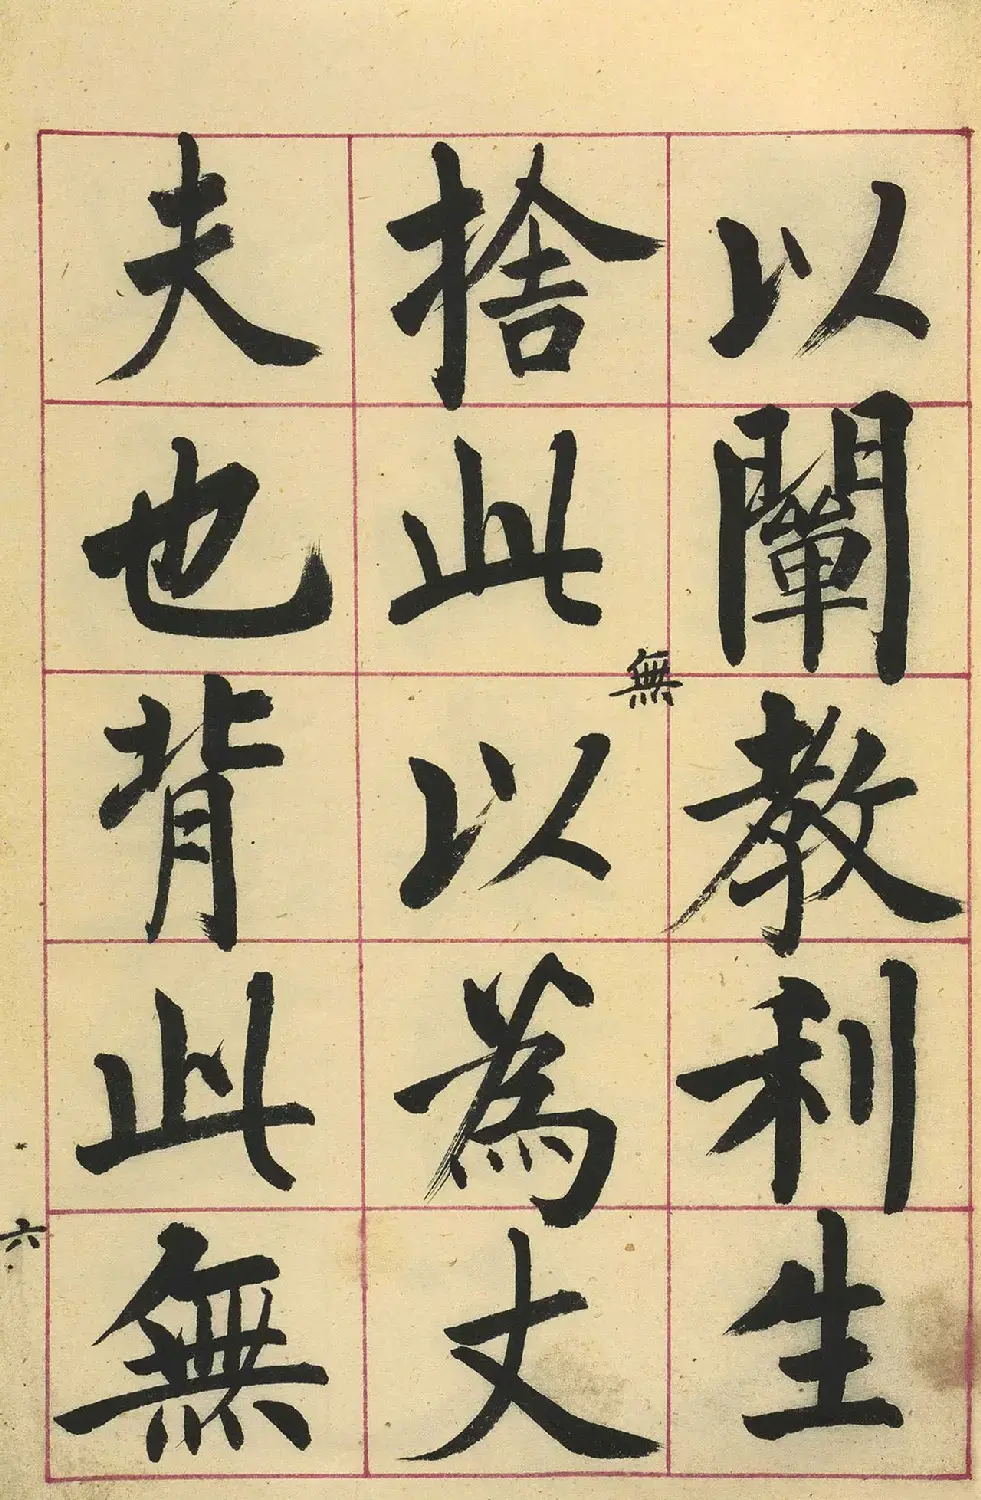 以闡教利生
捨此無以為丈
夫也背此無
六